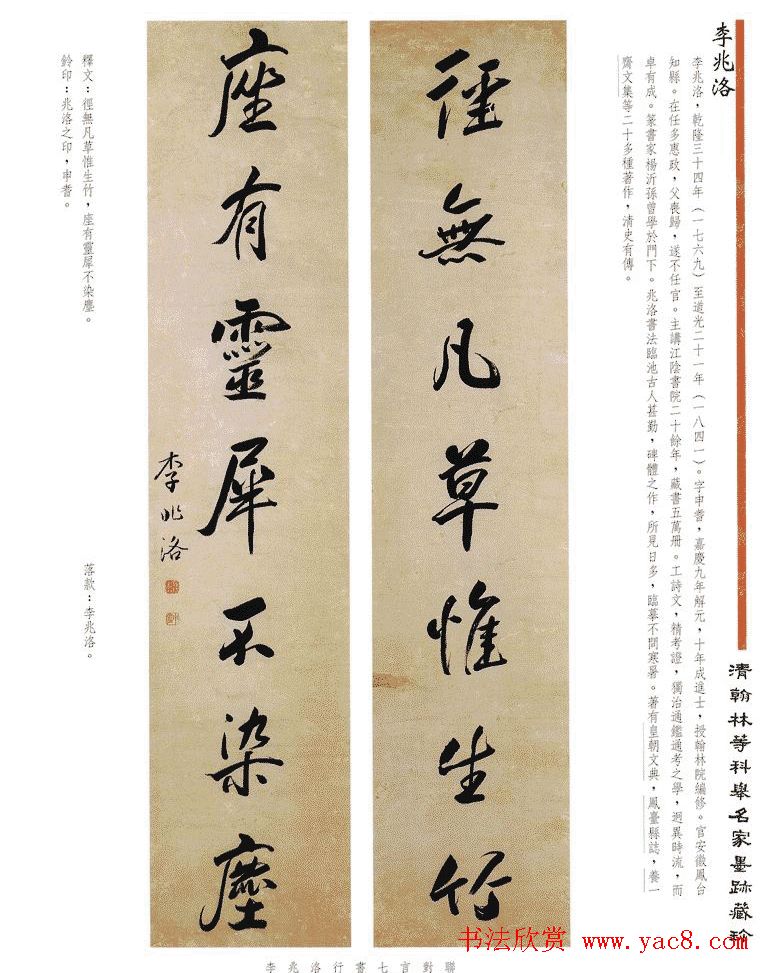 李兆洛
李兆洛，乾隆三十四年（一七六九）至道光二十一年（一八四一）。字申耆，嘉慶九年解元，十年成進士，授翰林院編修。官安徽鳳台
知縣。在任多惠政，父喪歸，遂不任官。主講江陰書院二十餘年，藏書五萬冊。工詩文，精考證，獨治通鑑通考之學，迥異時流，而
卓有成。篆書家楊沂孫曾學於門下。兆洛書法臨池古人甚勤，碑體之作，所見日多，臨摹不問寒暑。著有皇朝文典，鳳臺縣誌，養一
齋文集等二十多種著作，清史有傳。
清翰林等科舉名家墨跡藏珍
徑無凡草惟生竹
座有靈犀不染塵
李兆洛
釋文：徑無凡草惟生竹，座有靈犀不染塵。
落款：李兆洛。
鈐印：兆洛之印，申耆。
李兆洛行書七言對聯
书法欣赏 www.yac8.com